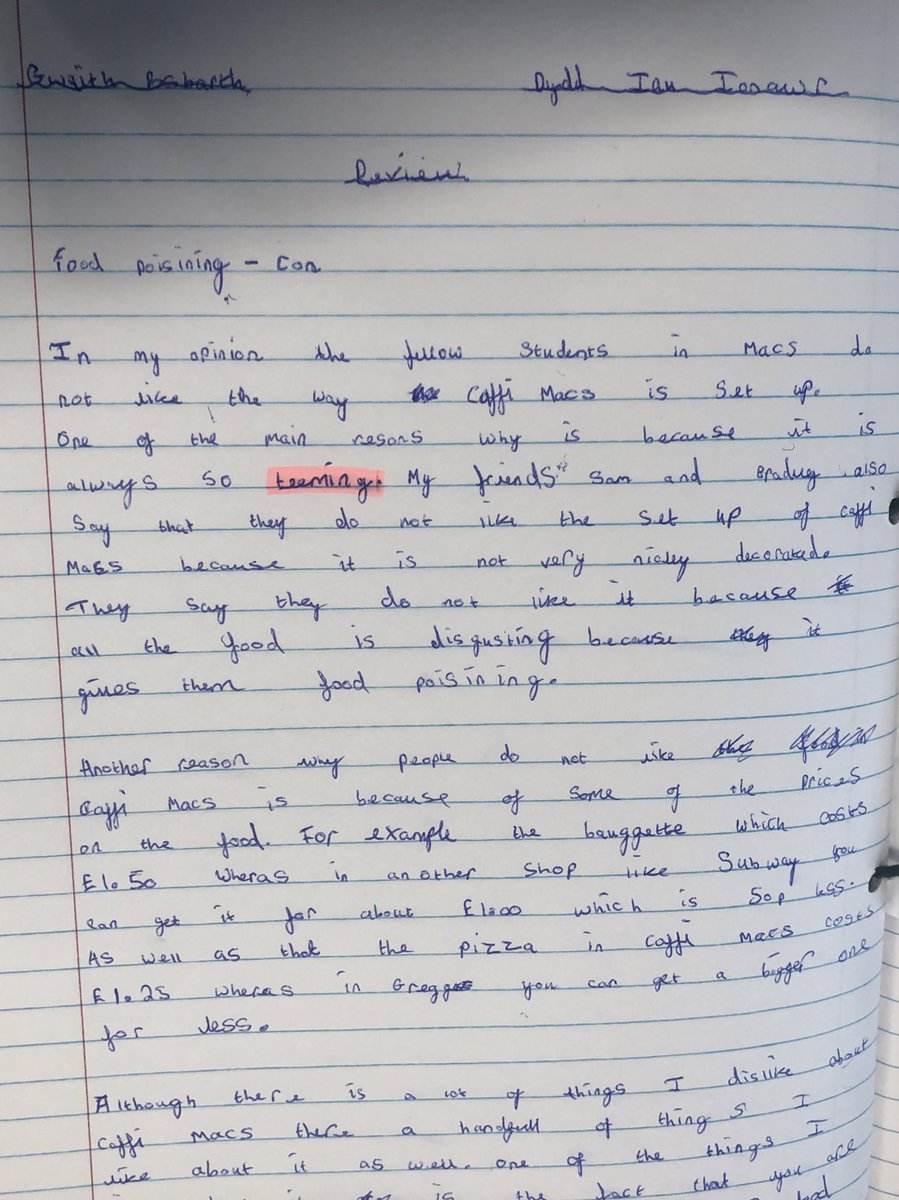 Gwaith Dosbarth Dydd Iau Ionawr
Review
Food poisining - Con
In my opinion the fellow students in Macs do
not like the way Caffi Macs is set up.
One of the main resons why is because it is
always so teeming. My friends Sam and also
say that they do not like the set up of caffi
Macs because it is not very nicley decorated.
They say they do not like it because
all the food is disgusting because it
gives them food poisining.
Another reason why people do not like
Caffi Macs is because of some of the prices
on the food. For example the bauggette which costs
£1.50 wheras in another shop like Subway you
can get it for about £1.00 which is 50p less.
As well as that the pizza in caffi macs costs
£1.25 wheras in Greggs you can get a bigger one
for less.
Although there is a lot of things I dislike about
Caffi Macs there a handfull of things I
like about it as well. one of the things I
is the fact that you are